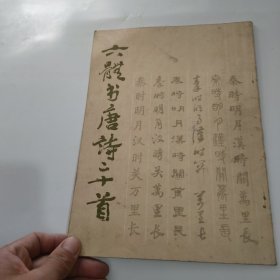 六體书唐詩二十首
秦時明月漢時關萬里長
秦時明月漢時關萬里長
秦時明月漢時關萬里長
秦時明月漢時關萬里長
秦时明月汉时关万里长